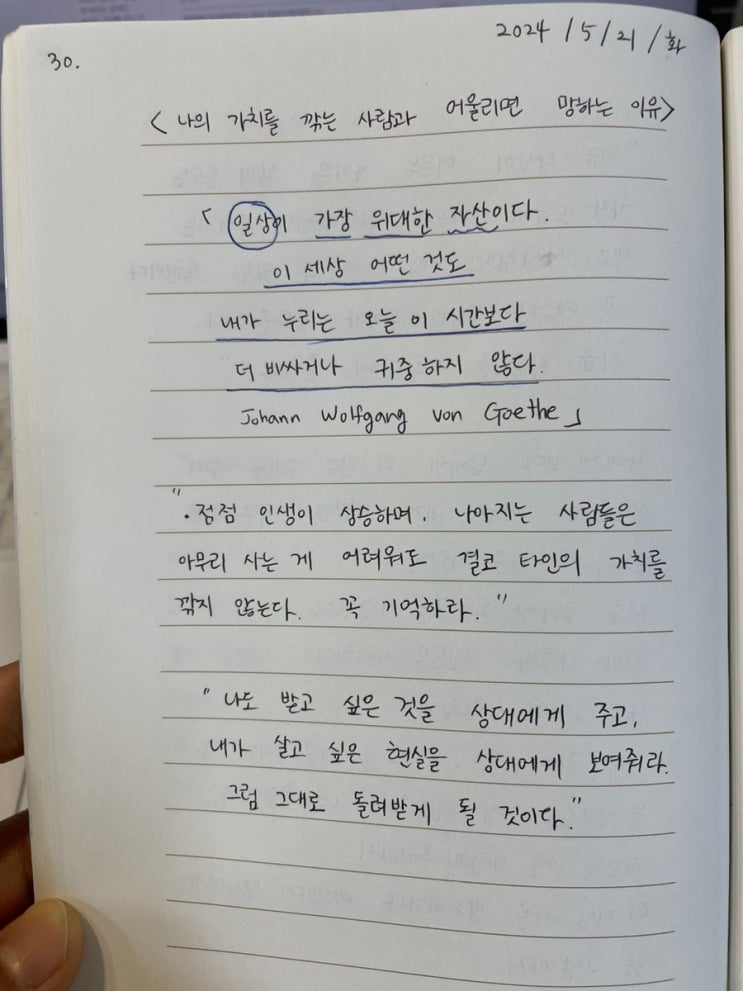 2024 / 5 / 21 / 화
30.
< 나의 가치를 깎는 사람과 어울리면 망하는 이유>
「 일상이 가장 위대한 자산이다.
이 세상 어떤 것도
내가 누리는 오늘 이 시간보다
더 비싸거나 귀중하지 않다.
Johann Wolfgang von Goethe」
" · 점점 인생이 상승하며, 나아지는 사람들은
아무리 사는 게 어려워도 결코 타인의 가치를
깎지 않는다. 꼭 기억하라. "
" 나도 받고 싶은 것을 상대에게 주고,
내가 살고 싶은 현실을 상대에게 보여줘라.
그럼 그대로 돌려받게 될 것이다."